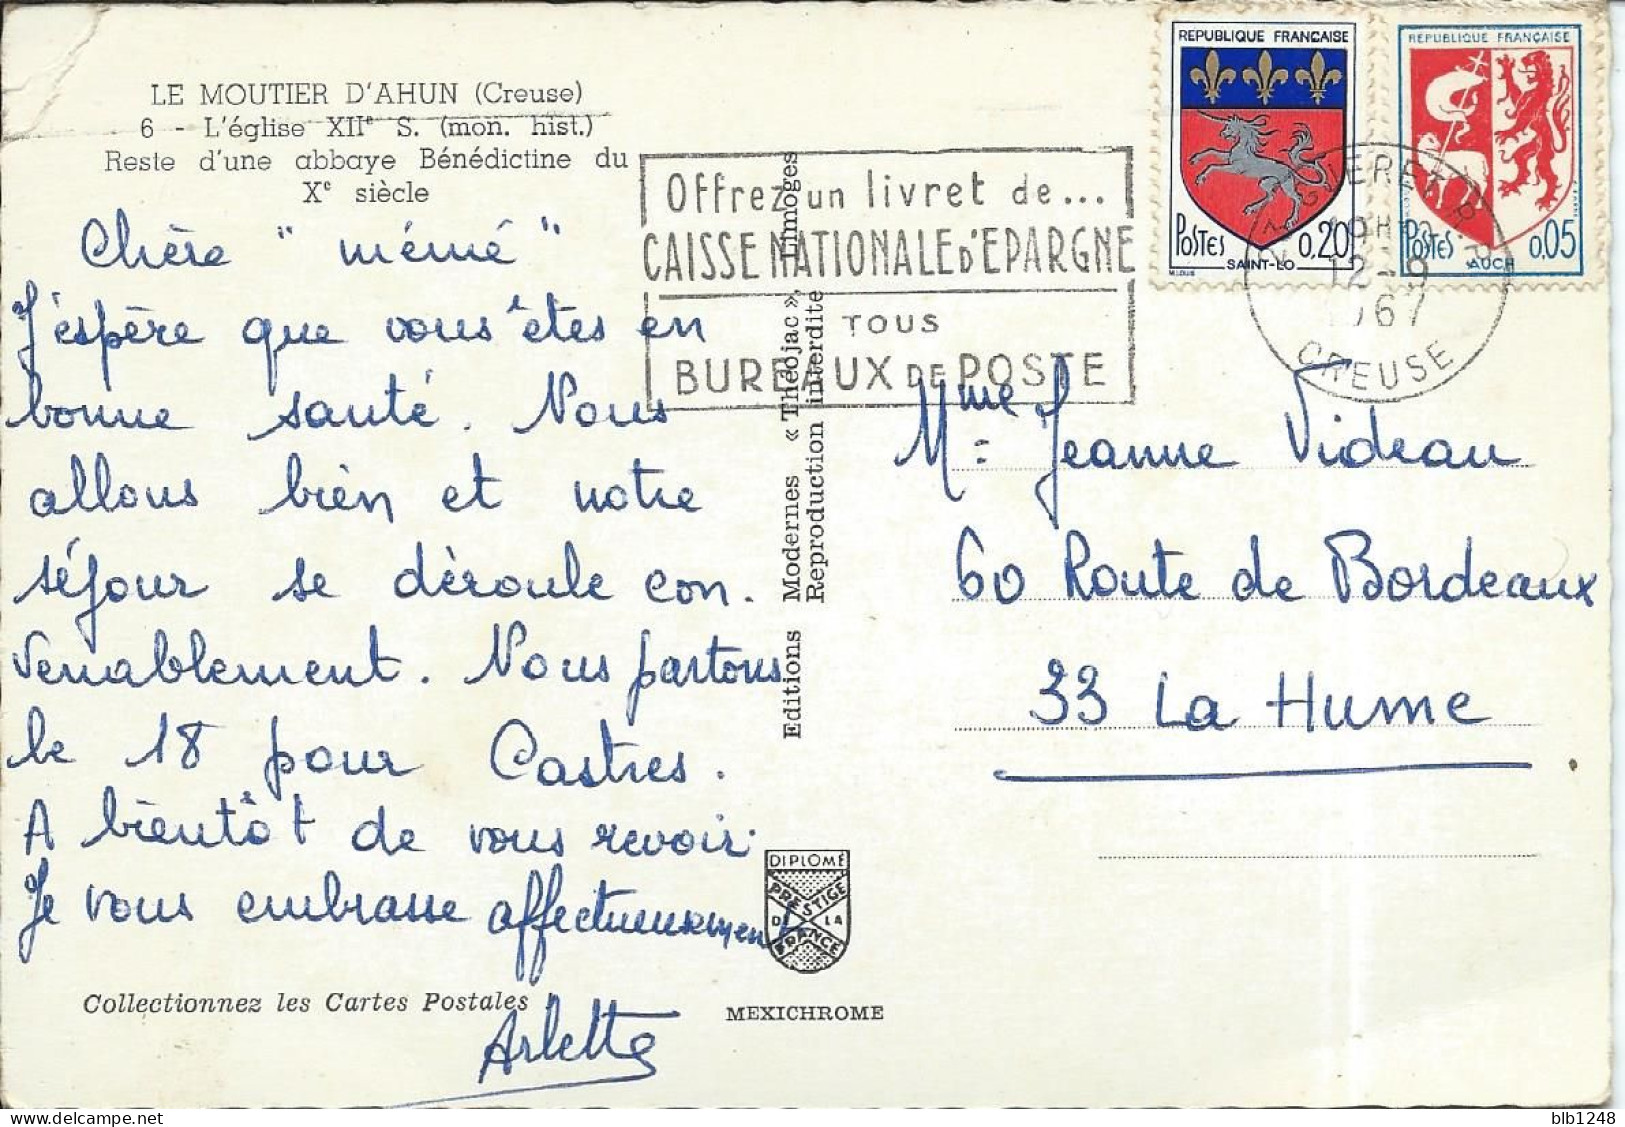 LE MOUTIER D'AHUN (Creuse)
6 - L'église XIIe S. (mon. hist.)
Reste d'une abbaye Bénédictine du
Xe siècle
Chère "mémé"
J'espère que vous êtes en
bonne santé. Nous
allons bien et notre
séjour se déroule con.
venablement. Nous partons
le 18 pour Castres.
A bientôt de vous revoir.
Je vous embrasse affectueusement
Arlette
Collectionnez les Cartes Postales
Editions Modernes « Théojac », Limoges
Reproduction interdite
DIPLOME
PRESTIGE
DE LA
FRANCE
MEXICHROME
Offrez un livret de...
CAISSE NATIONALE D'EPARGNE
TOUS
BUREAUX DE POSTE
REPUBLIQUE FRANCAISE
POSTES 0,20
SAINT-LO
REPUBLIQUE FRANÇAISE
POSTES 0,05
AUCH
12-9
1967
CREUSE
Mme Jeanne Videau
60 Route de Bordeaux
33 La Hume
blb1248